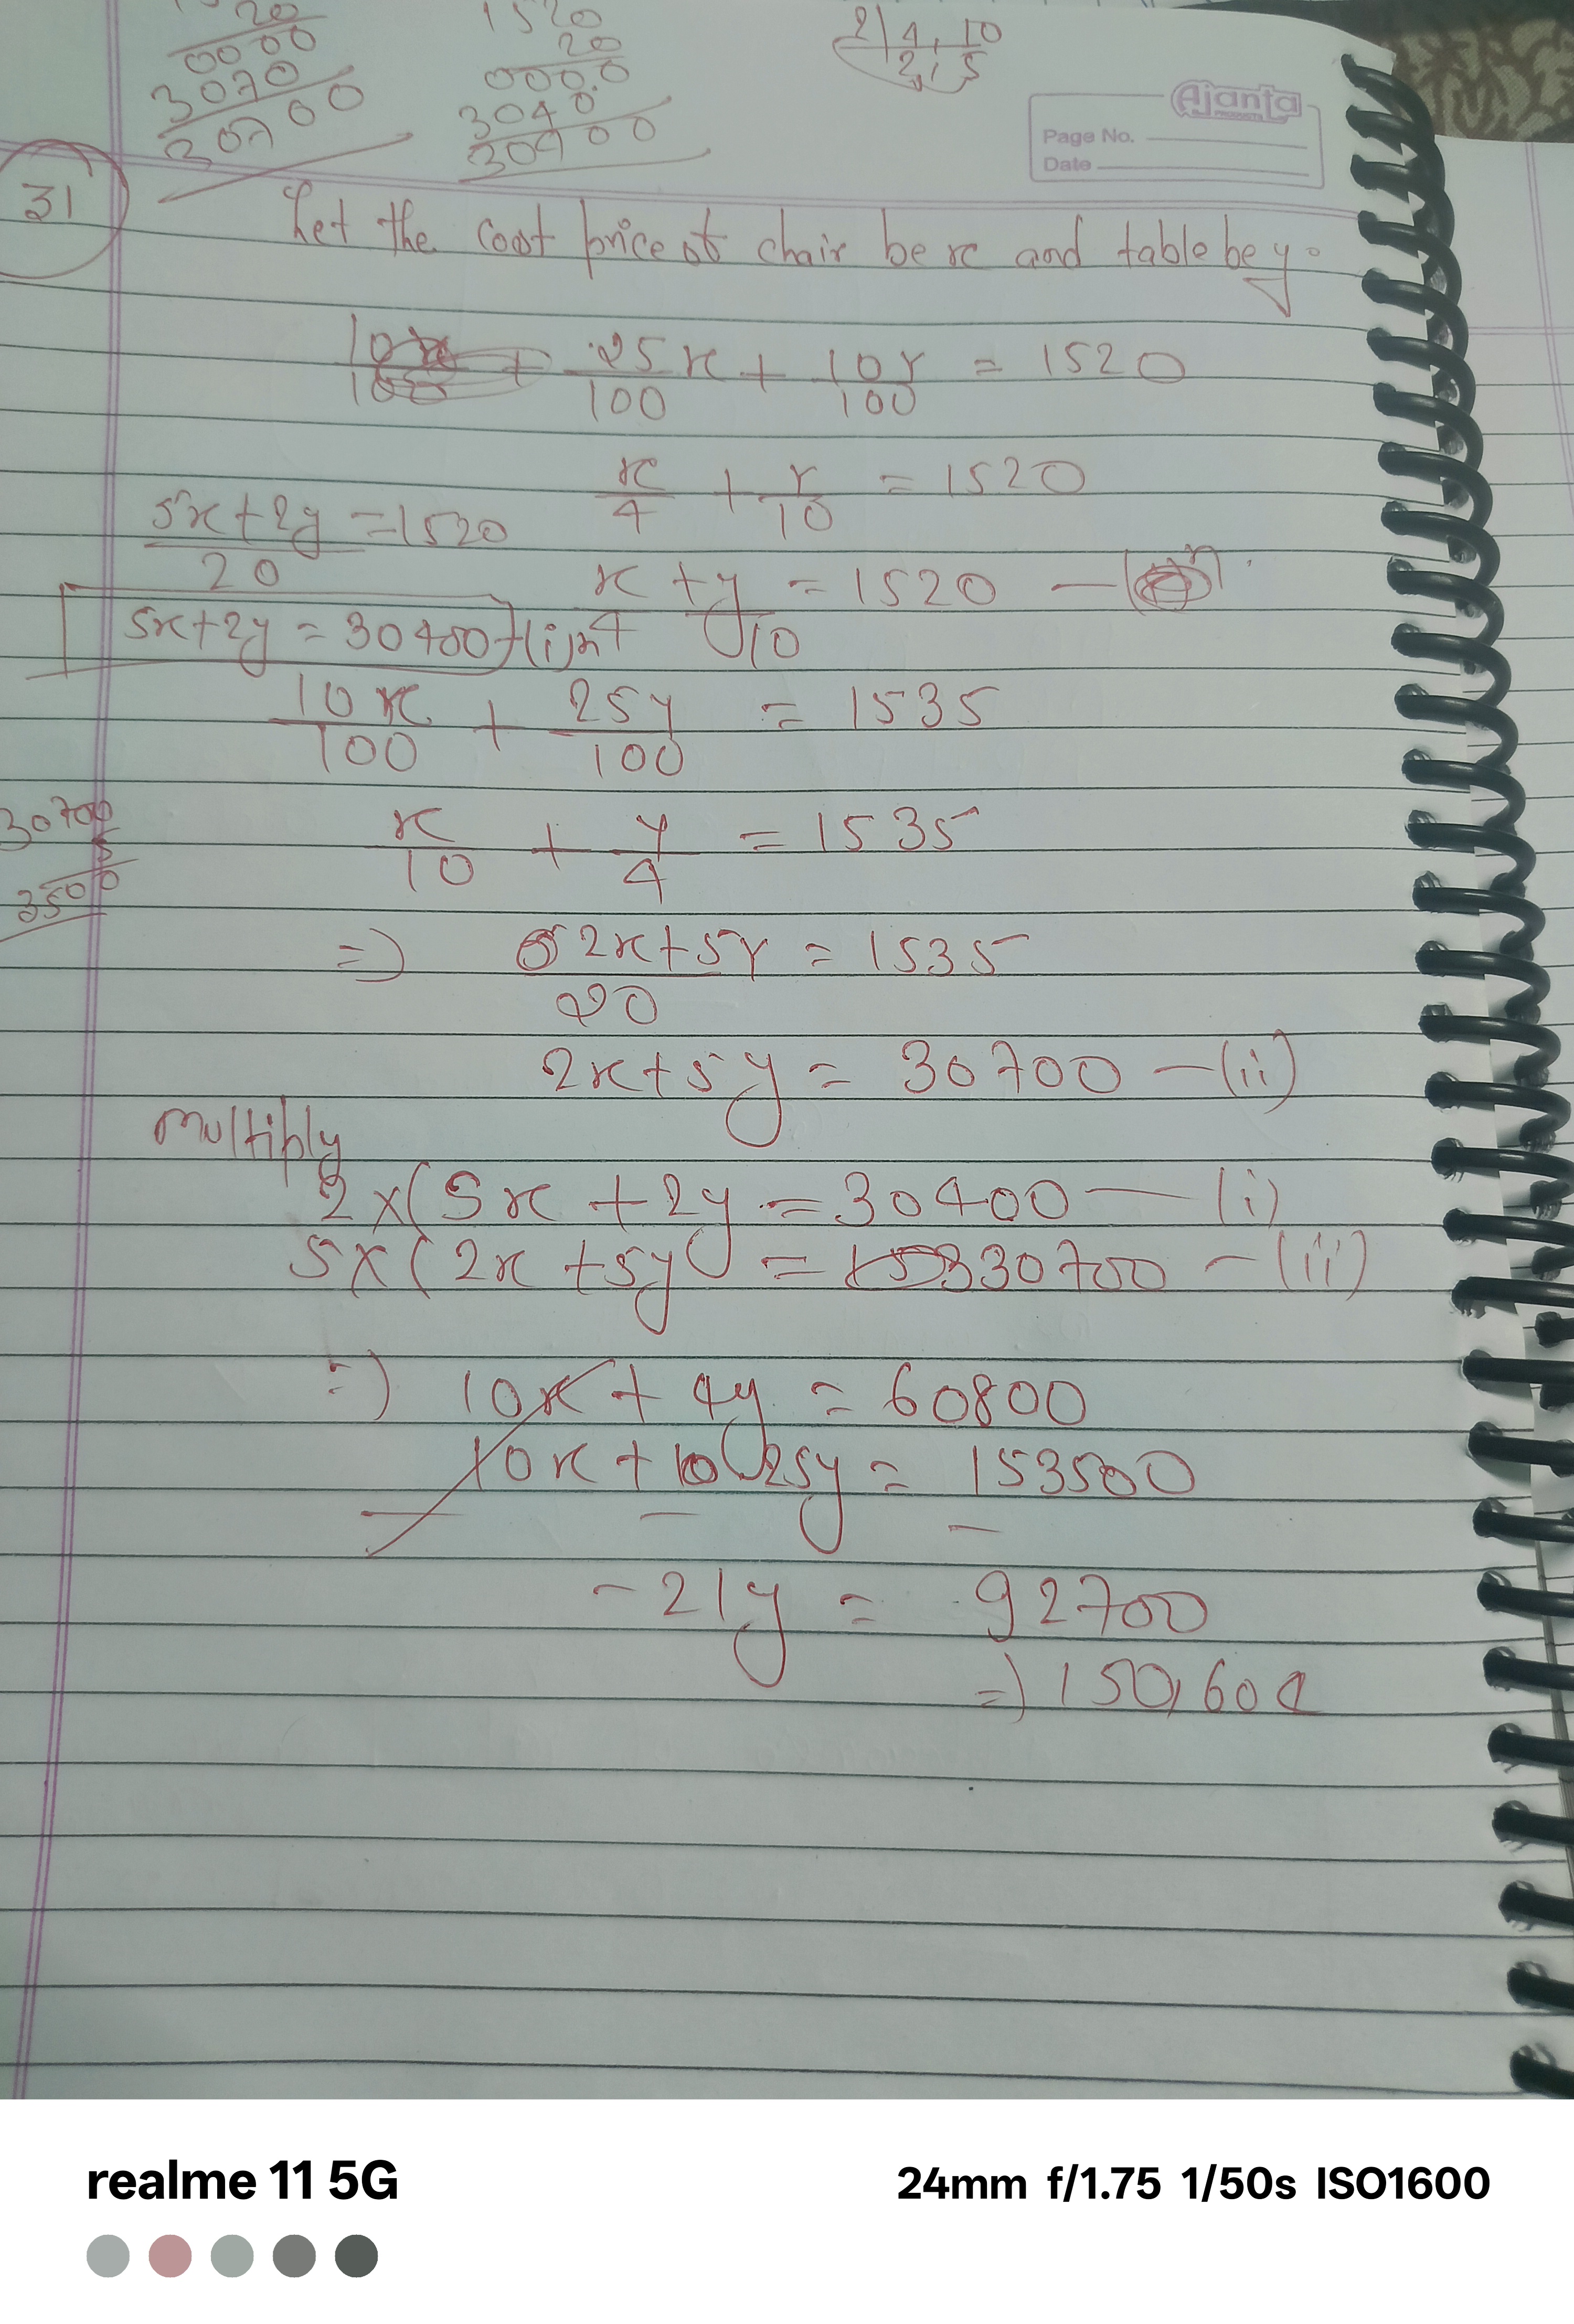 20
0000
3070
30700
1520
20
0000
3040
30400
2|4, 10
2, 5
Ajanta
Page No.
Date
31
Let the cost price of chair be x and table be y.
25x/100 + 10y/100 = 1520
x/4 + y/10 = 1520
5x+2y/20 = 1520
x/4 + y/10 = 1520 —
5x+2y = 30400 —(i)
10x/100 + 25y/100 = 1535
30700
5
3500
x/10 + y/4 = 1535
=) 2x+5y/20 = 1535
2x+5y = 30700 —(ii)
multiply
2×(5x + 2y = 30400 — (i)
5×(2x + 5y = 30700 — (ii)
=) 10x + 4y = 60800
10x + 25y = 153500
— — —
-21y = 92700
=) 150,604
realme 11 5G
24mm f/1.75 1/50s ISO1600